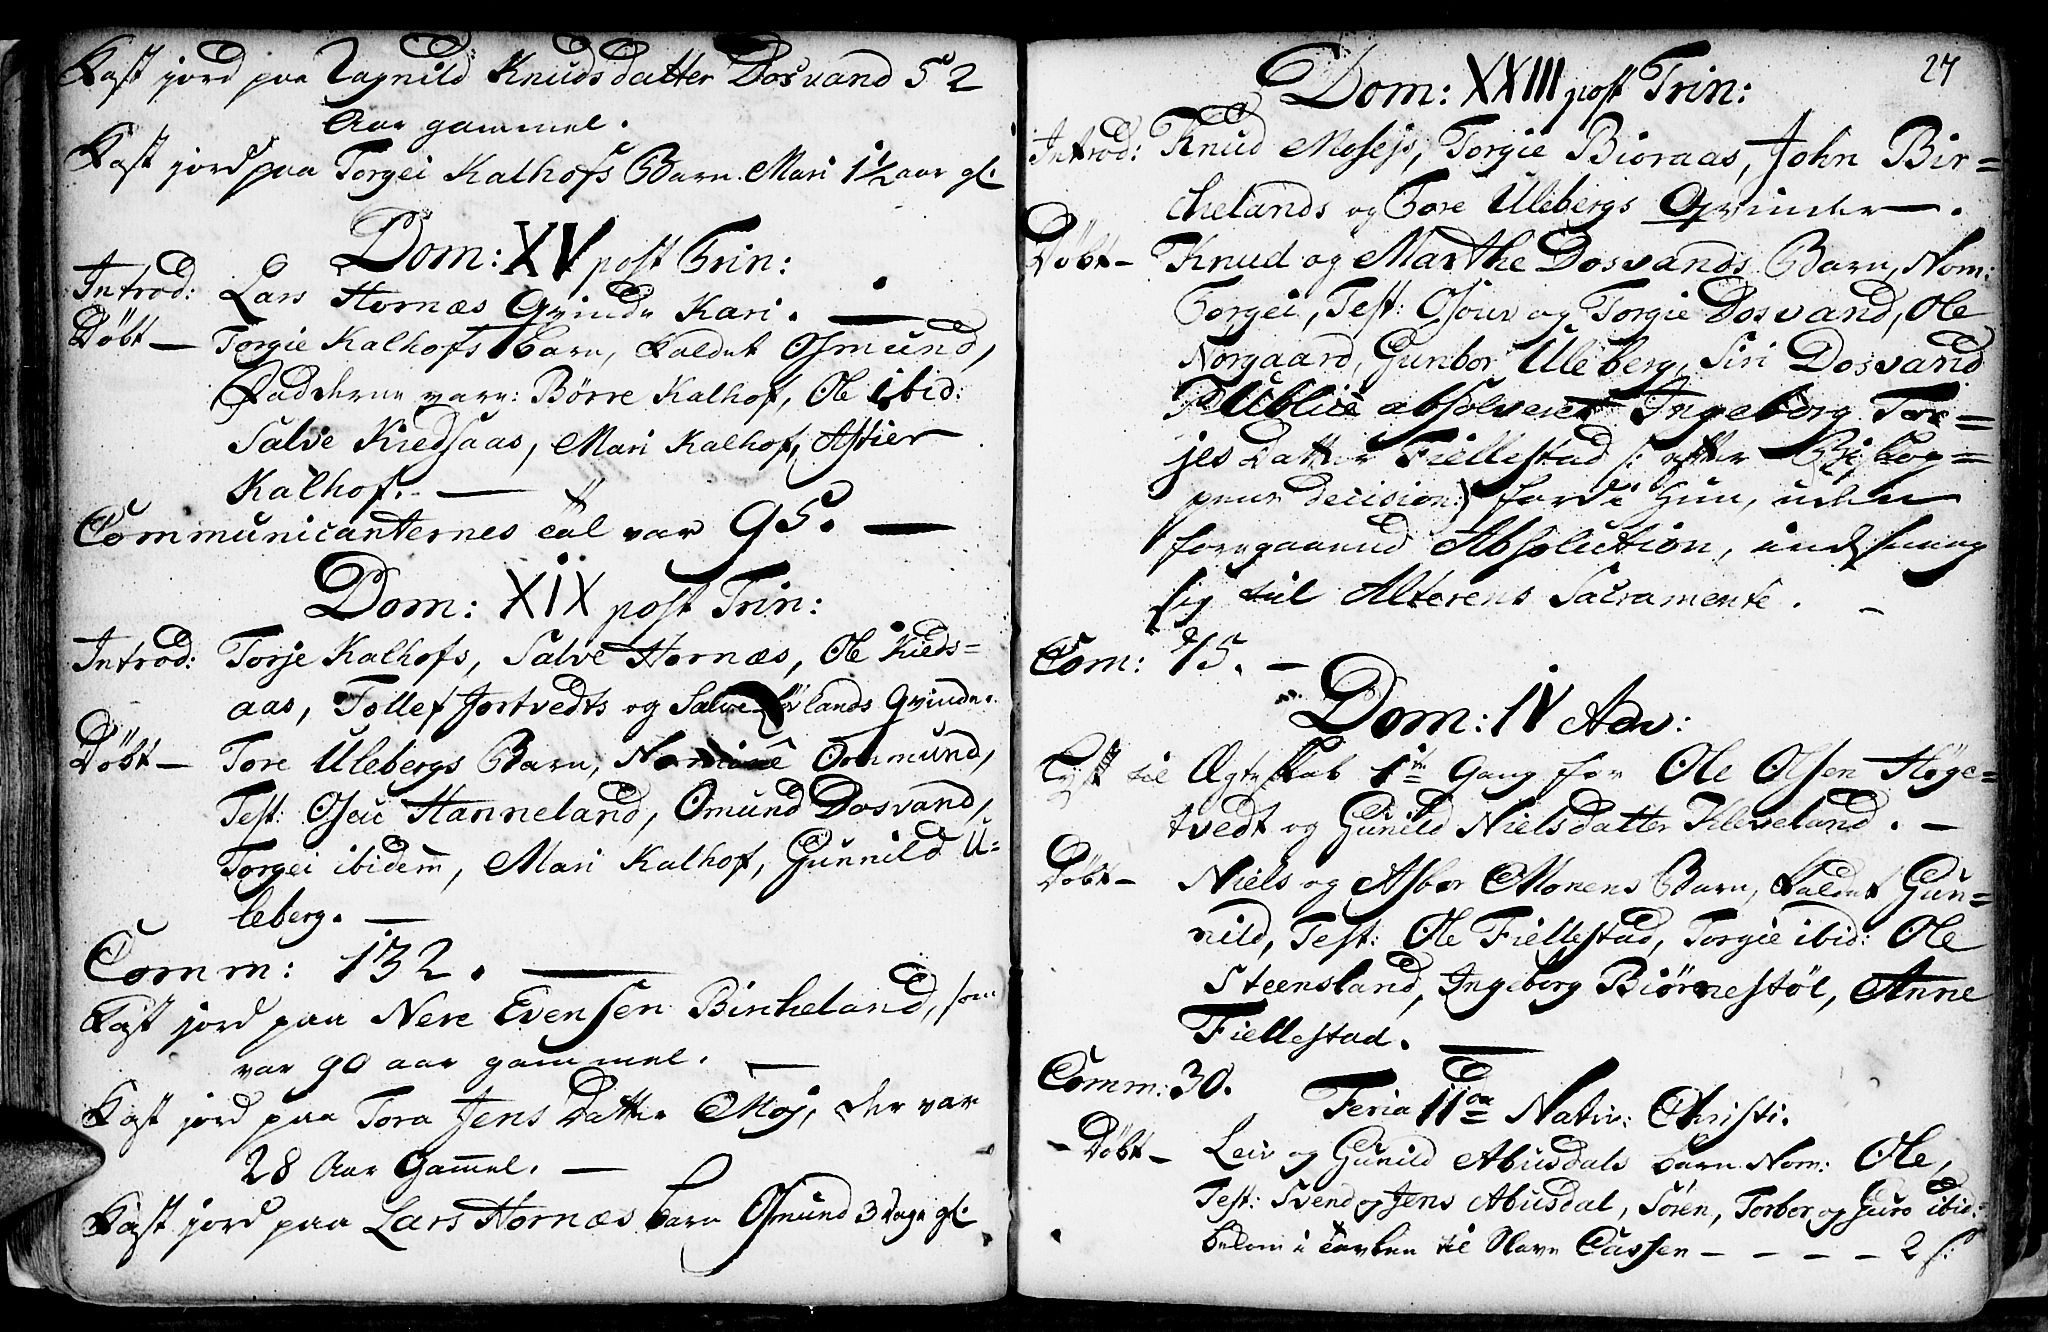 Kast jord paa Tagnild Knudsdatter Dosvand 52
Aar gammel.
Kast jord paa Torgei Kalhofs Barn Mari 1 1/2 aar gl:
Dom: XV post Trin:
Introd: Lars Hornæs Qvinde Kari.
Döbt — Torgie Kalhofs barn, kaldet Osmund,
Fadderne vare: Börre Kalhof, Ole ibid:
Salve Kiedsaas, Mari Kalhof, Astier
Kalhof. —
Communicanternes tal var 95. —
Dom: XIX post Trin:
Introd: Torje Kalhofs, Salve Hornæs, Ole Kieds=
aas, Tollef Jortvedts og Salve lands Qvinder.
Döbt — Tore Ulebergs Barn, Nomine Ommund,
Test: Osul Hanneland, Omund Dosvand,
Torgei ibidem, Mari Kalhof, Gunnild U=
leberg. —
Comm: 132. —
Kast jord paa Nere Evensen Bircheland, som
var 90 aar gammel. —
Kast jord paa Tora Jens Datter Moj, der var
28 Aar Gammel. —
Kast jord paa Lars Hornæs barn Osmund 3 dage gl:
27
Dom: XXIII post Trin:
Introd: Knud Mosejs, Torgie Bioraas, John Bir=
chelands og Tore Ulebergs Qvinder.
Döbt — Knud og Marthe Dosvands Barn, Nom:
Torgei, Test: Osouv og Torgie Dosvand, Ole
Norgaard, Gunbor Uleberg, Siri Dosvand
Publice absolveret Ingeborg Tor=
jes datter Fiellestad /: efter Biskop=
pens decision :/ fordi Hun, uden
foregaaende Absolution, indsneeg
sig til Alterens Sacramente. —
Com: 75. —
Dom: IV Adv:
Lyst til Ægteskab 1te Gang for Ole Olsen Höge=
tvedt og Gunild Nielsdatter Kleveland. —
Döbt — Niels og Asbor Monens Barn, kaldet Gun=
nild, Test: Ole Fiellestad, Torgie ibid: Ole
Steensland, Ingeborg Biörnestöl, Anne
Fiellestad. —
Comm: 30.
Feria IIda Nativ: Christi.
Döbt — Leiv og Gunild Abusdals barn Nom: Ole,
Test: Svend og Jens Abusdal, Sören, Torbor og Guro ibid:
bekom i Tavlen til Slave Cassen — — — — 2 s: